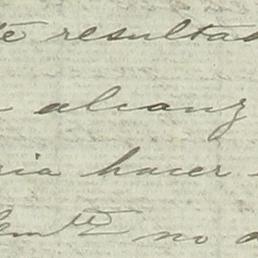 te resultad
alcanz
ria hacer
emte no